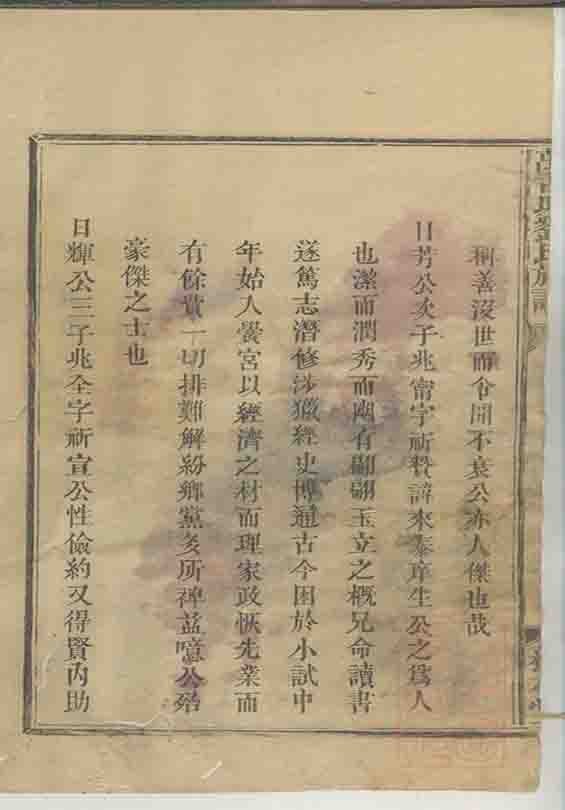 稱善沒世而令聞不衰公亦人傑也哉
日芳公次子兆甯字祈贊諱來泰庠生公之爲人
也潔而潤秀而幽有翩翩玉立之概兄命讀書
遂篤志潛修涉獵經史博通古今困於小試中
年始入黌宮以經濟之材而理家政恢先業而
有餘貲一切排難解紛鄉黨多所裨益噫公殆
豪傑之士也
日輝公三子兆全字祈宣公性儉約又得賢內助